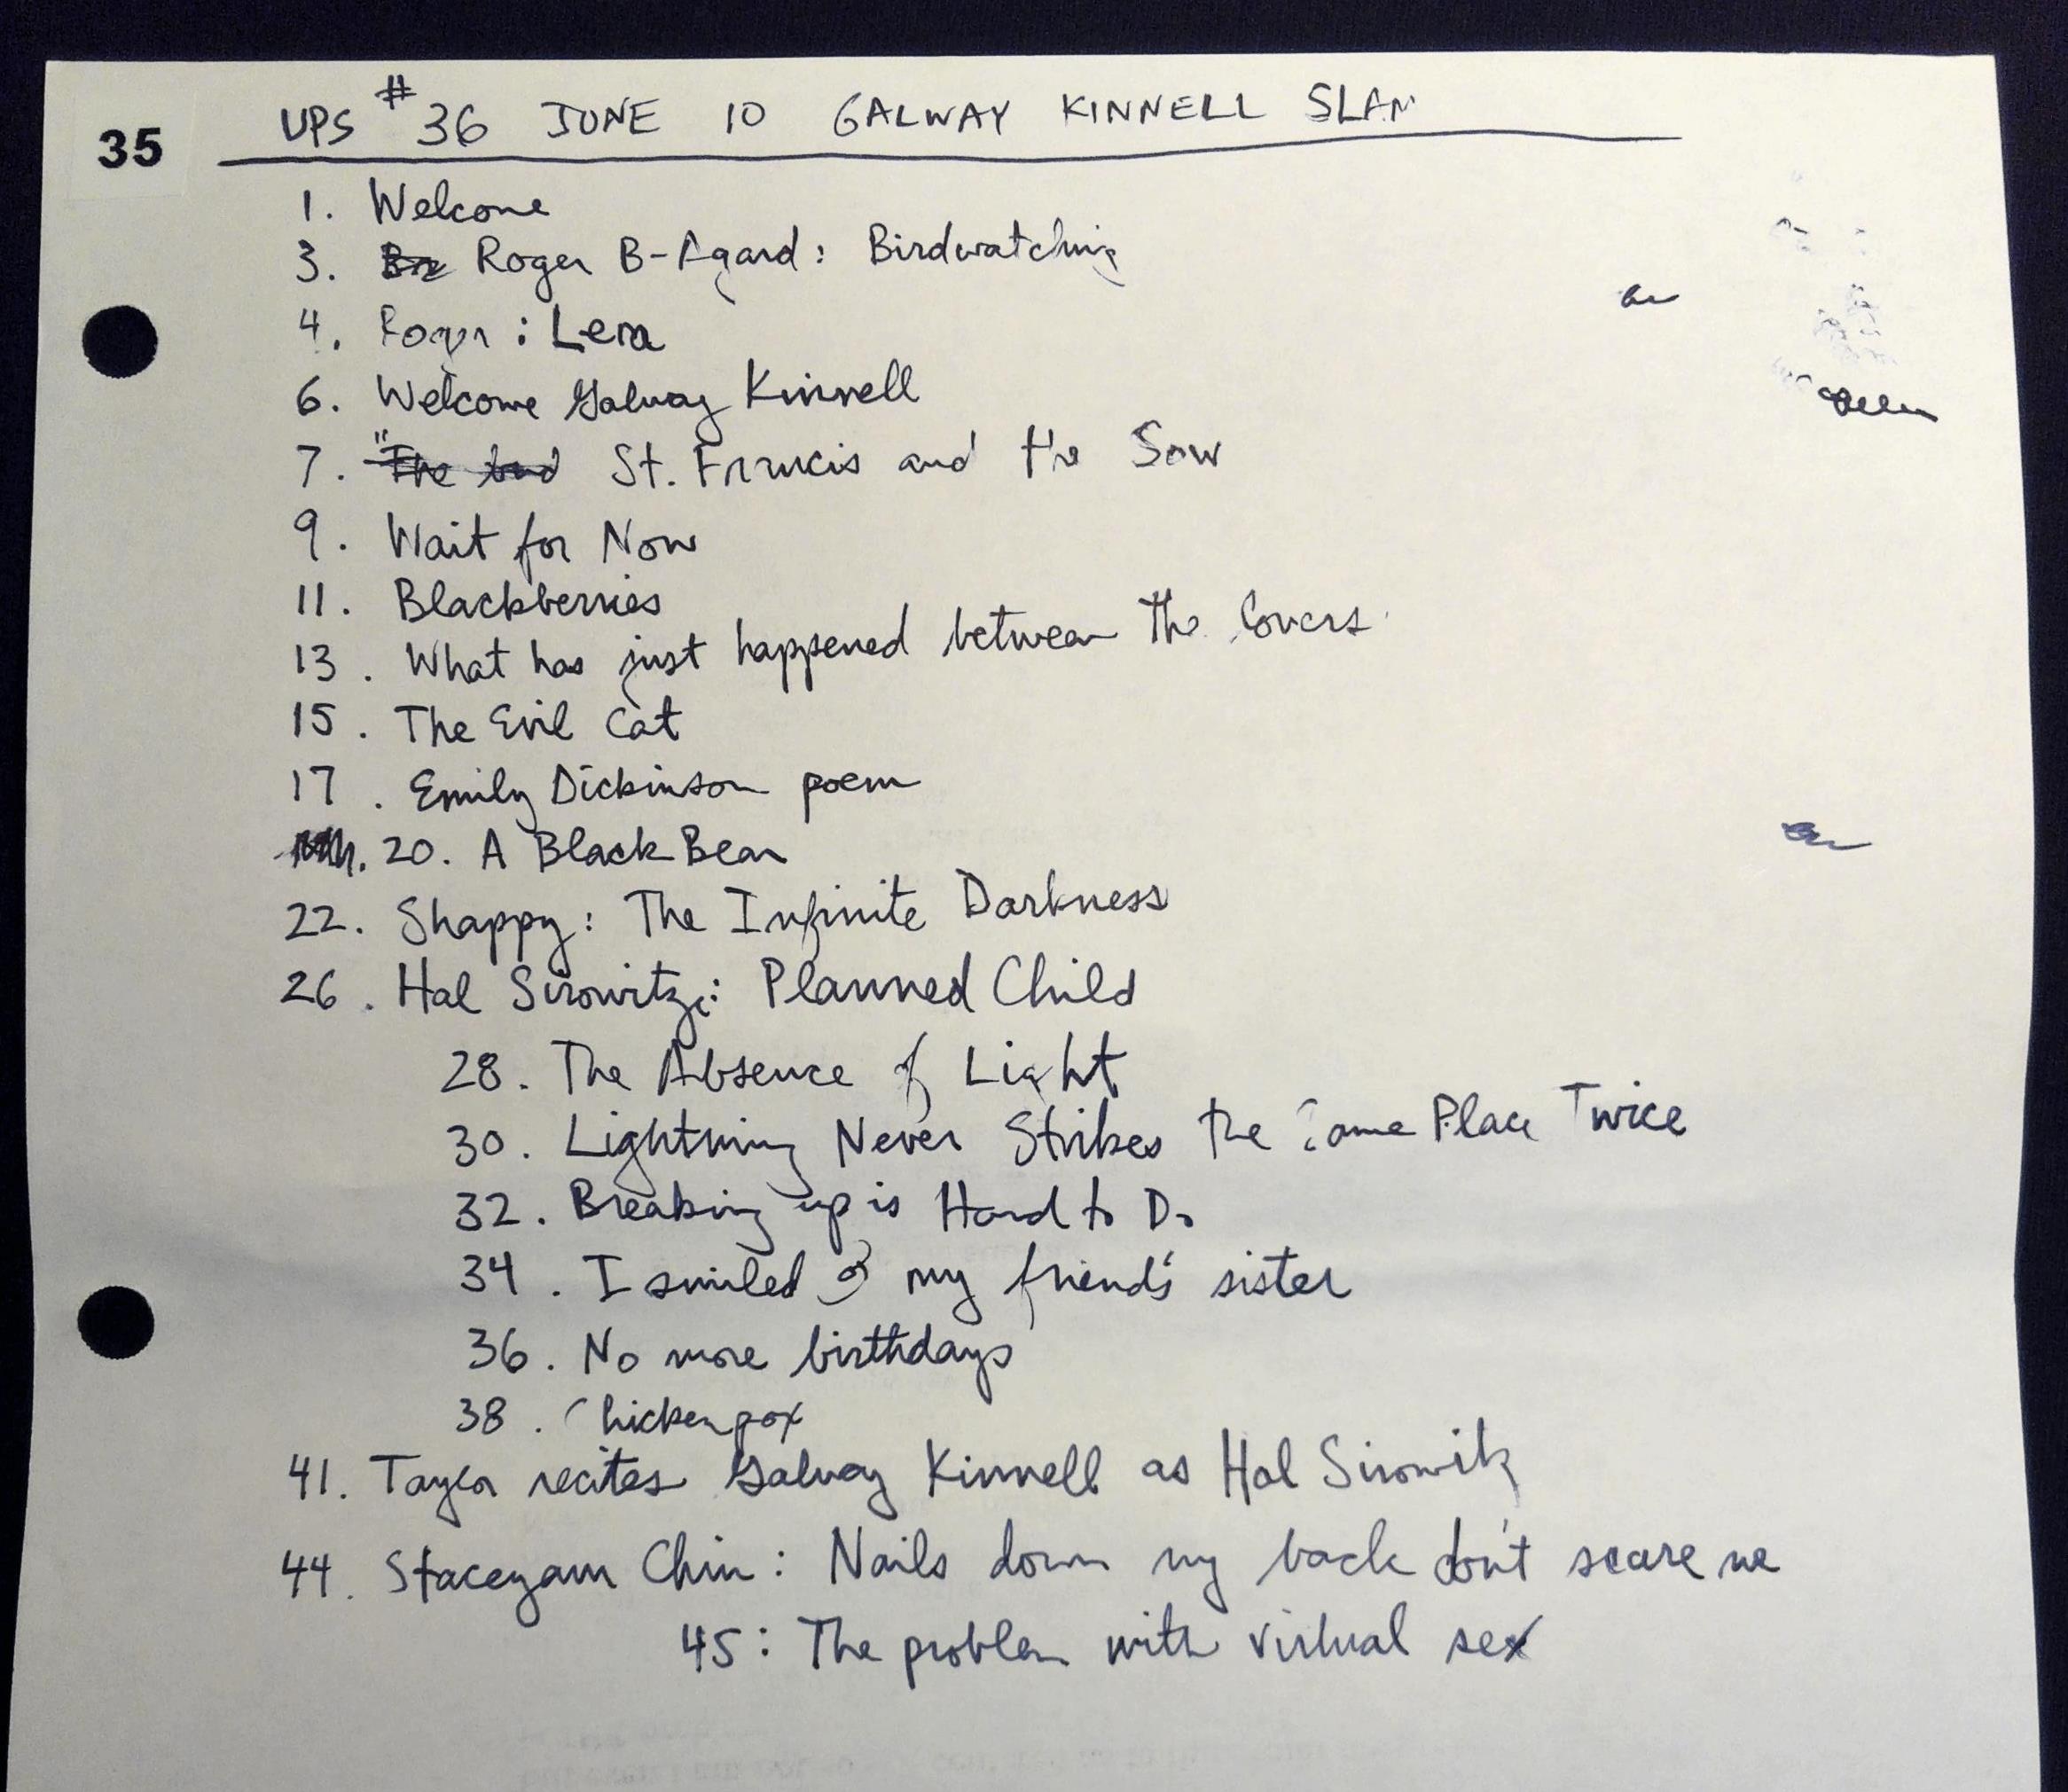 35
UPS #36 JUNE 10 GALWAY KINNELL SLAM
1. Welcome
3. Roger B-Agard: Birdwatching
4. Roger: Lena
6. Welcome Galway Kinnell
7. "The bud St. Francis and the Sow
9. Wait for Now
11. Blackberries
13. What has just happened between the lovers.
15. The Evil Cat
17. Emily Dickinson poem
20. A Black Bear
22. Shappy: The Infinite Darkness
26. Hal Sirowitz: Planned Child
28. The Absence of Light
30. Lightning Never Strikes the Same Place Twice
32. Breaking up is Hard to Do
34. I smiled @ my friend's sister
36. No more birthdays
38. Chicken pox
41. Taylor recites Galway Kinnell as Hal Sirowitz
44. Staceyann Chin: Nails down my back don't scare me
45: The problem with virtual sex